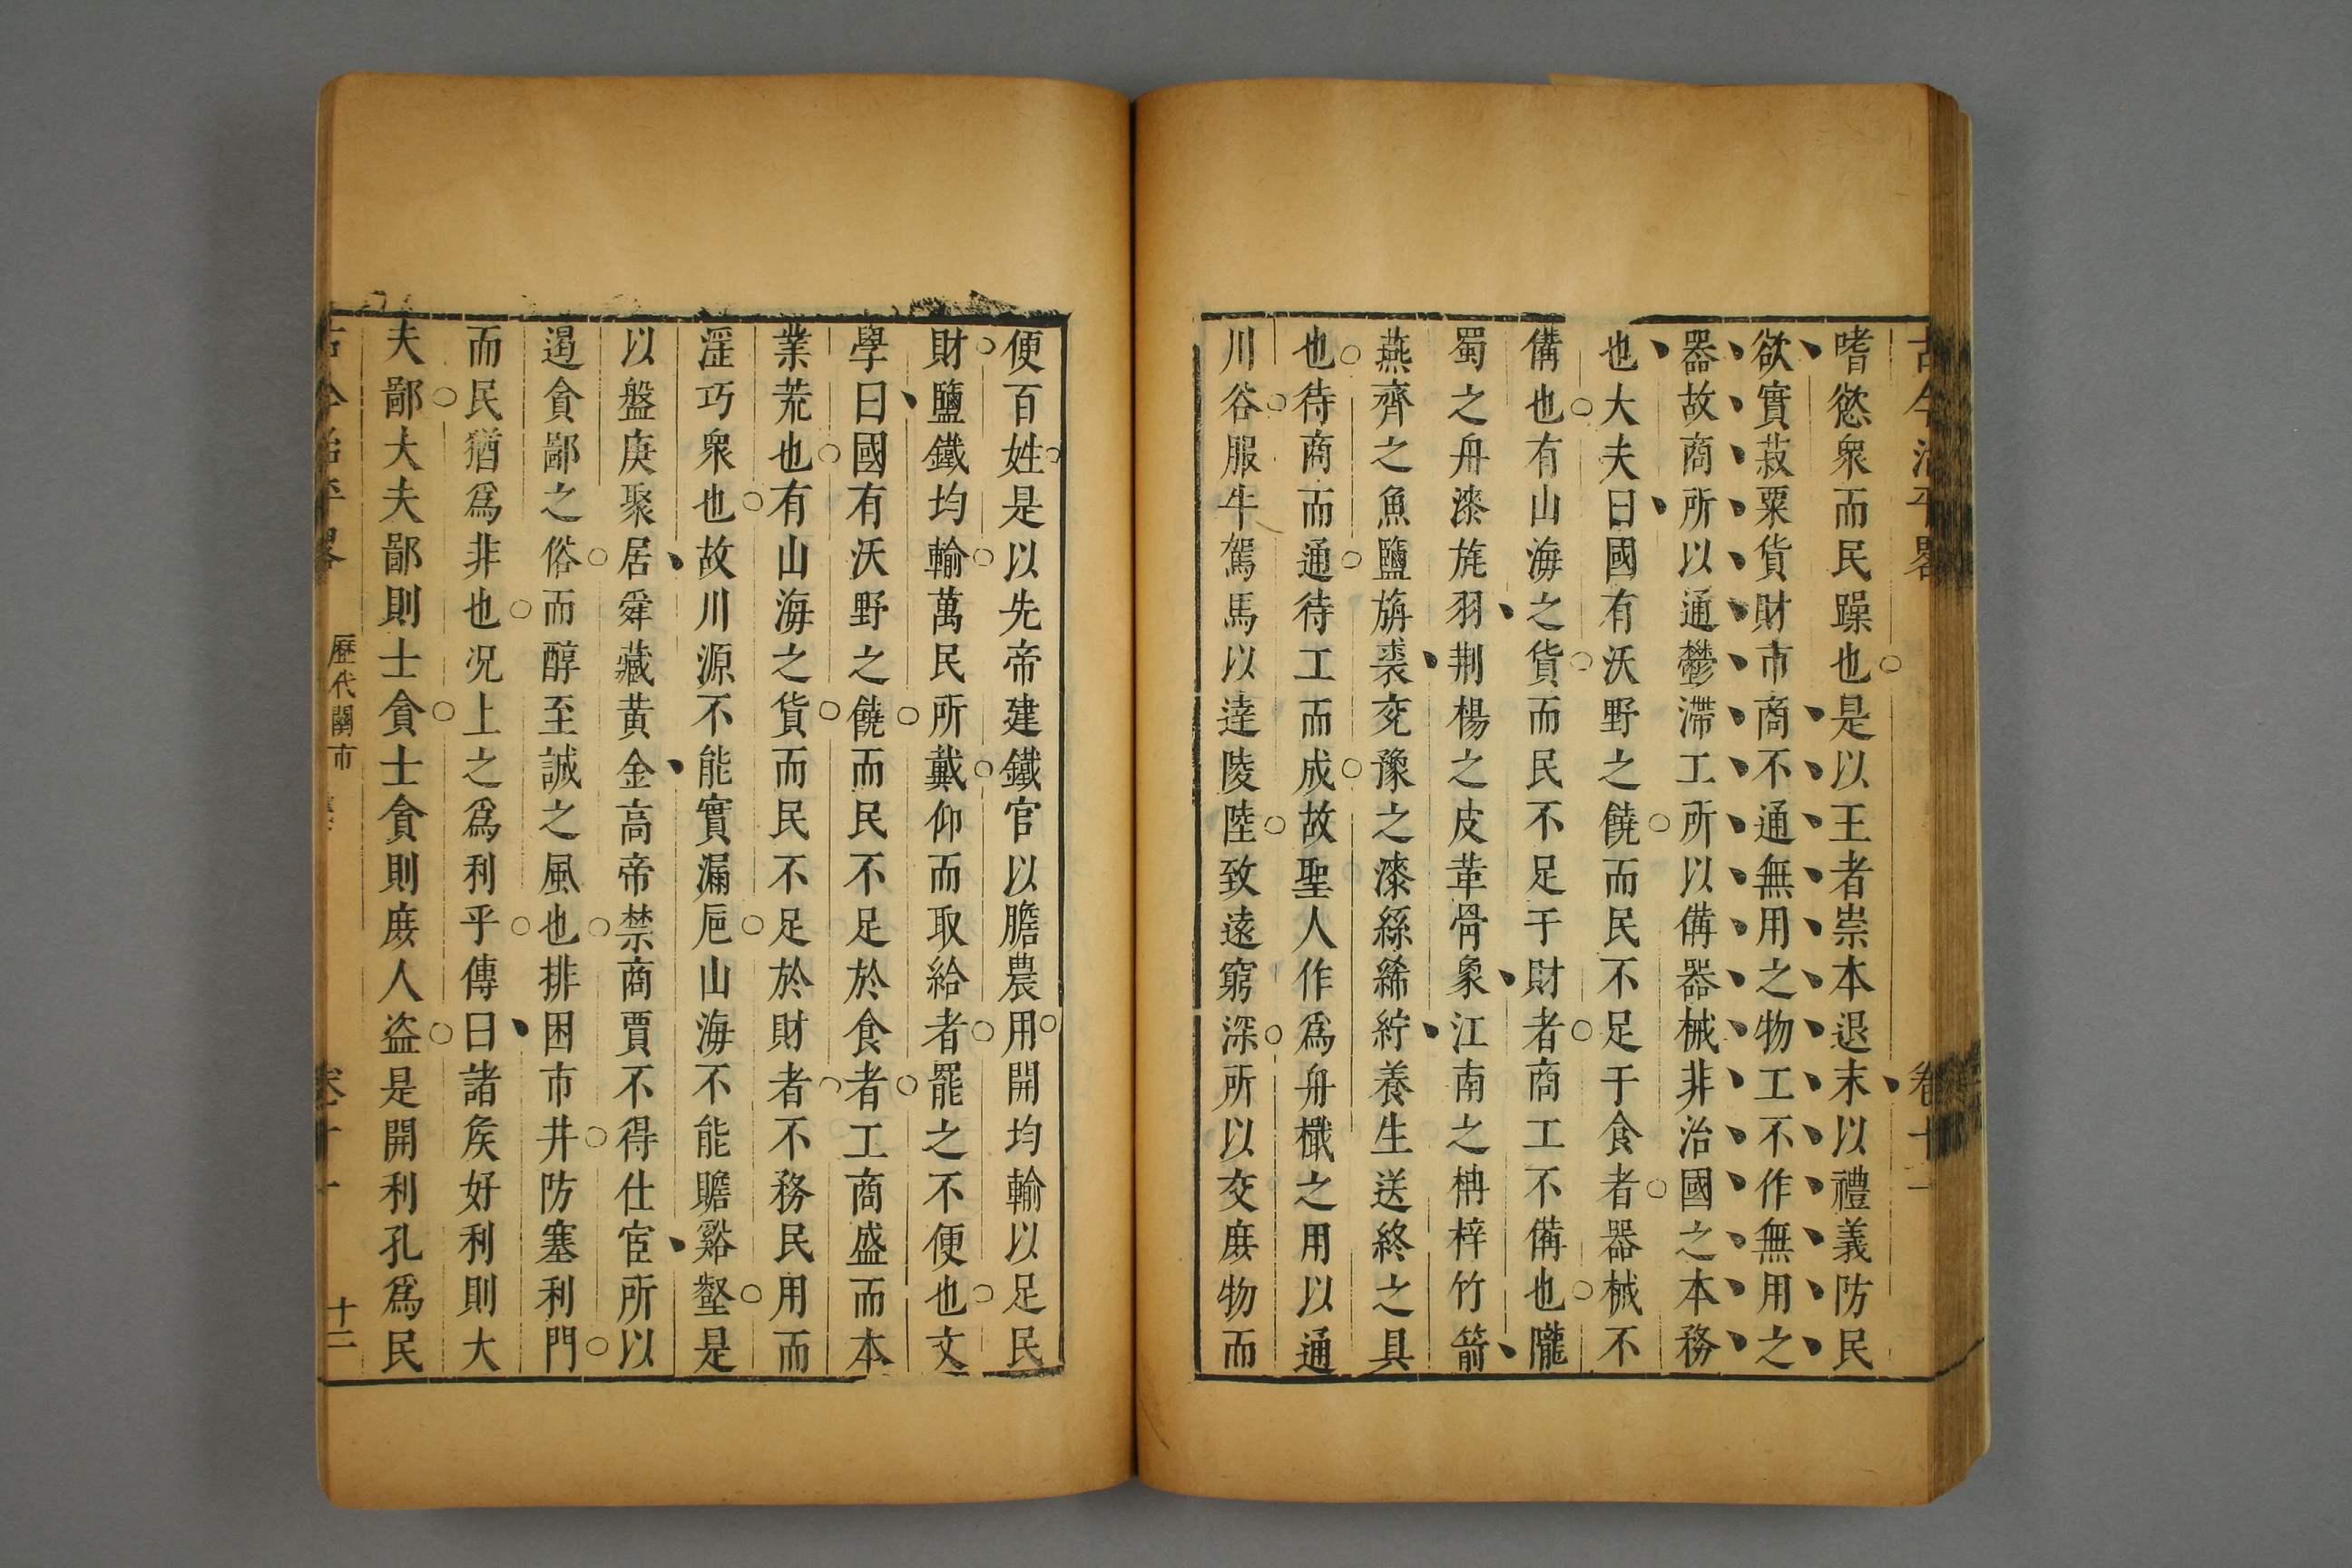 古今治平畧 卷十一
嗜慾衆而民躁也是以王者崇本退末以禮義防民
欲實菽粟貨財市商不通無用之物工不作無用之
器故商所以通鬱滯工所以備器械非治國之本務
也大夫曰國有沃野之饒而民不足于食者器械不
備也有山海之貨而民不足于財者商工不備也隴
蜀之舟漆旄羽荆楊之皮革骨象江南之柟梓竹箭
燕齊之魚鹽旃裘兖豫之漆絲絺紵養生送終之具
也待商而通待工而成故聖人作爲舟檝之用以通
川谷服牛駕馬以逹陵陸致遠窮深所以交庻物而
便百姓是以先帝建鐵官以贍農用開均輸以足民
財鹽鐵均輸萬民所戴仰而取給者罷之不便也文
學曰國有沃野之饒而民不足於食者工商盛而本
業荒也有山海之貨而民不足於財者不務民用而
滛巧衆也故川源不能實漏巵山海不能贍谿壑是
以盤庚聚居舜藏黃金高帝禁商賈不得仕宦所以
遏貪鄙之俗而醇至誠之風也排困市井防塞利門
而民猶爲非也况上之爲利乎傳曰諸矦好利則大
夫鄙大夫鄙則士貪士貪則庻人盗是開利孔爲民
古今治平畧 歷代關市 卷十一 十二